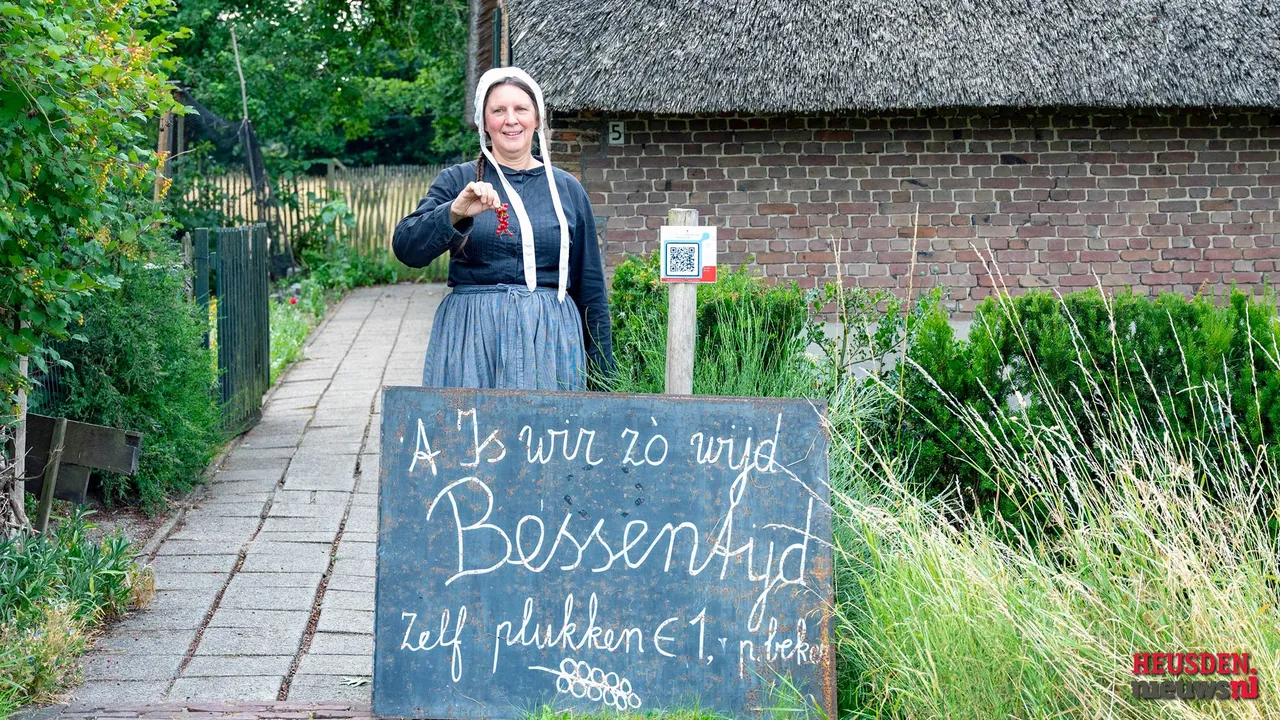 5
'A Is wir zò wijd
Bessentijd
Zelf plukken € 1,- p. beker
HEUSDEN.
nieuws.nl